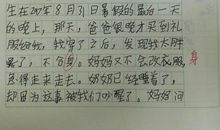 生在20年8月31日暑假的最后一天
的晚上，那天，爸爸很晚才买到礼
服给我，我穿了之后，发现我太胖
是了，不合身，妈妈又不会改衣服 身
急得走来走去。奶奶已经睡着了，
却因为这事被我们吵醒了。奶奶问